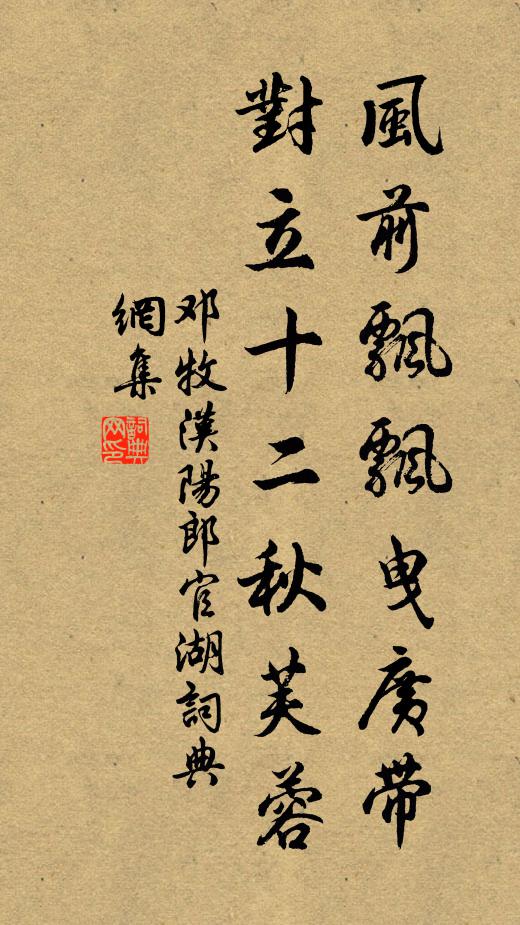 風前飄飄曳廣帶
對立十二秋芙蓉
邓牧漢陽郎官湖詞典
網集
詞典網印